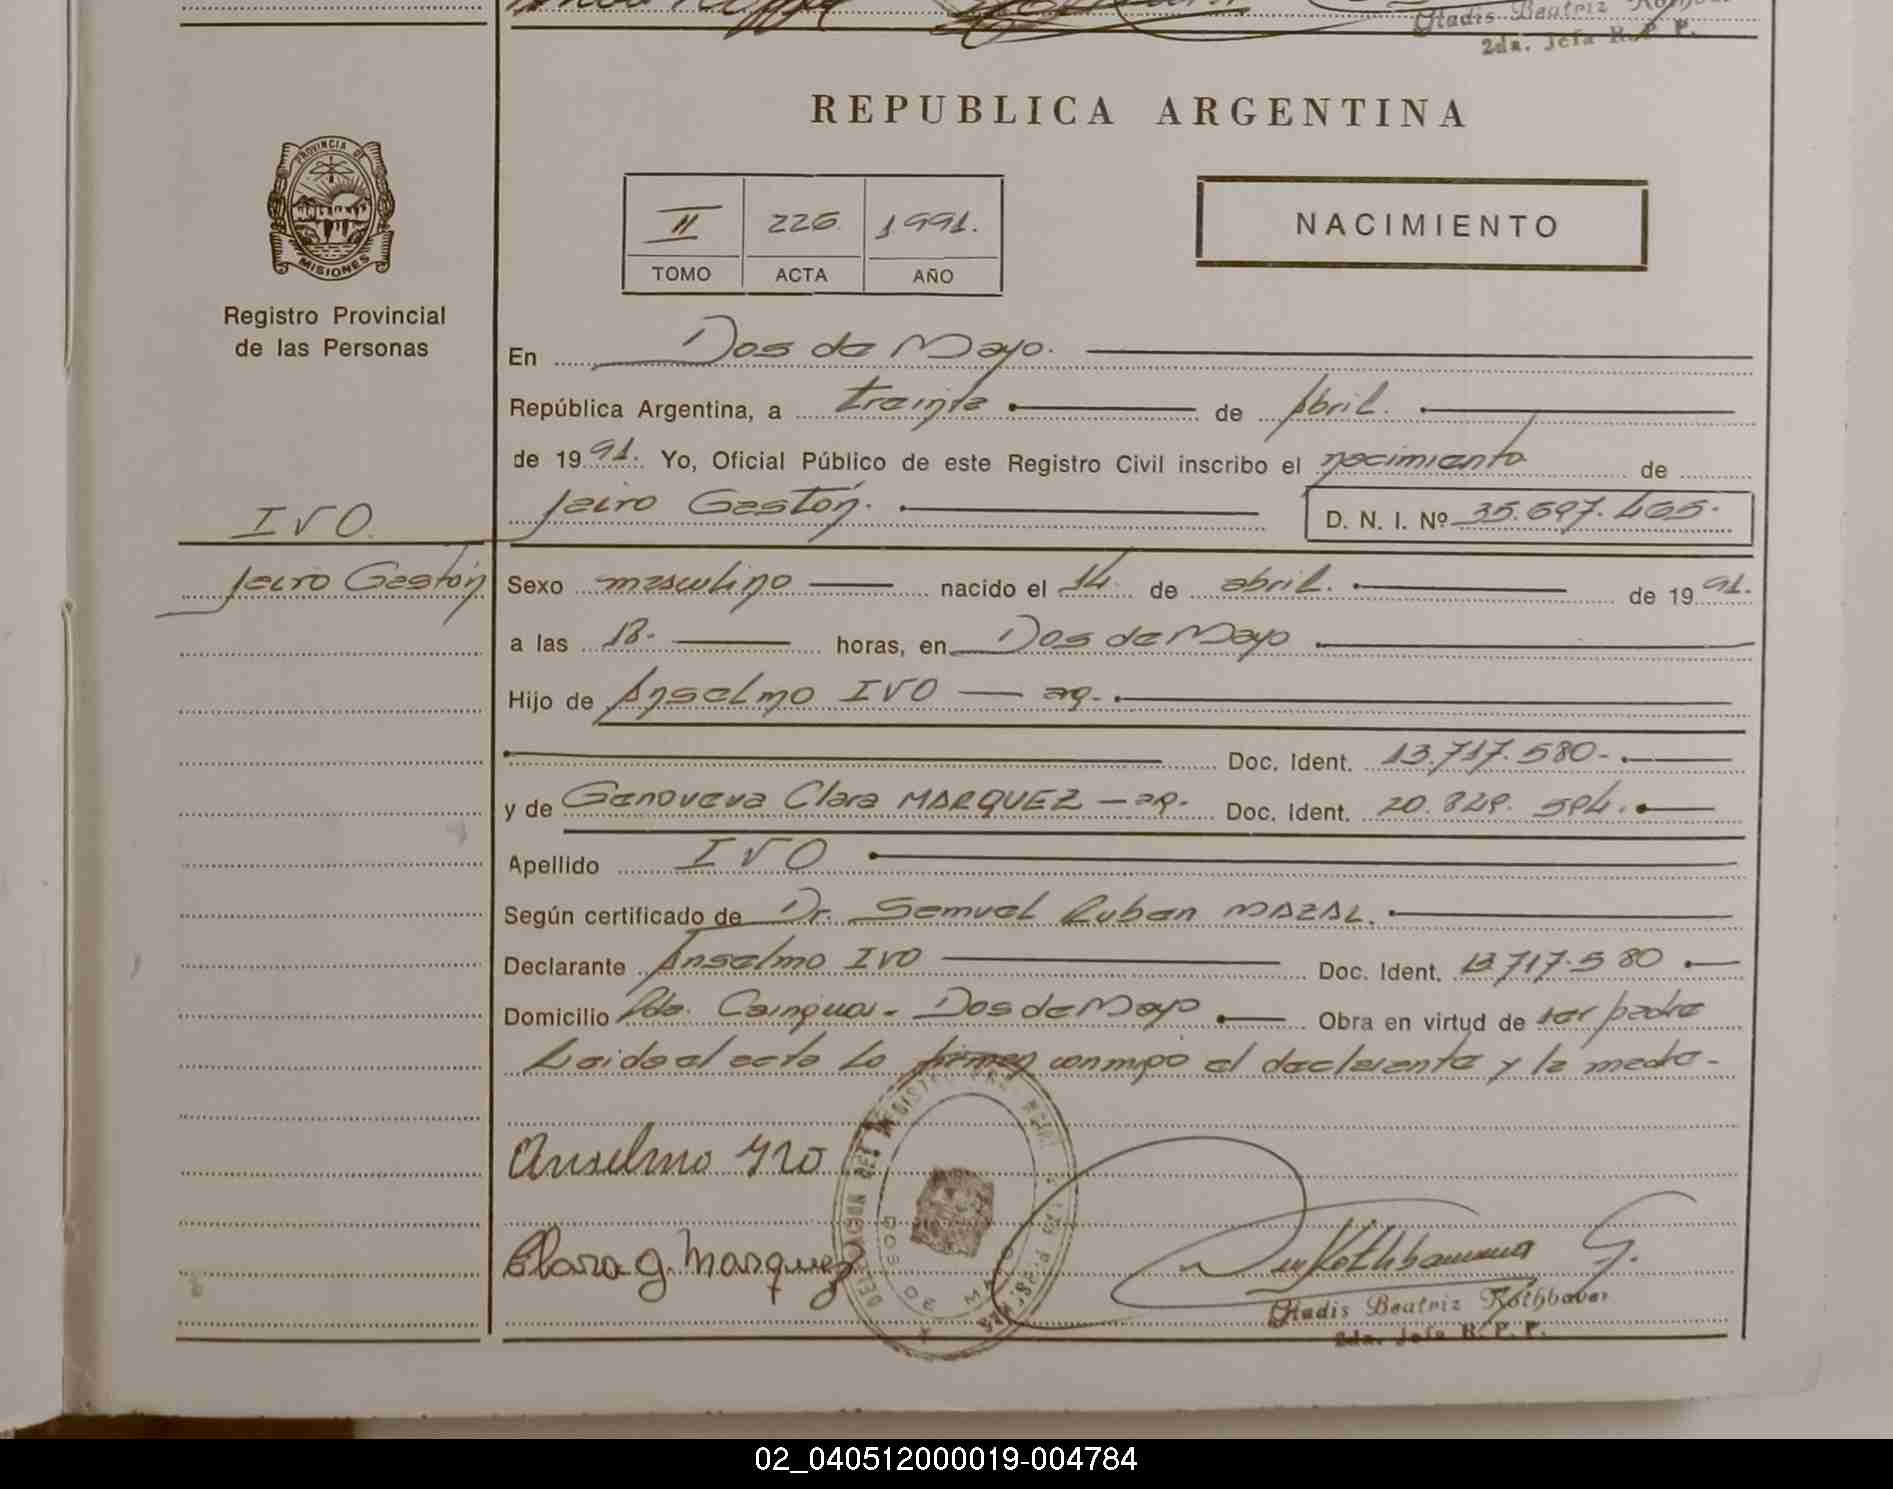 Gladis Beatriz
2da. Jefa R. P. P.
REPUBLICA ARGENTINA
PROVINCIA DE
MISIONES
Registro Provincial
de las Personas
II 226. 1991.
TOMO ACTA AÑO
NACIMIENTO
En Dos de Mayo.
República Argentina, a treinta de Abril.
de 1991. Yo, Oficial Público de este Registro Civil inscribo el nacimiento de
Jairo Gastón. D. N. I. Nº 35.697.465.
IVO.
Jairo Gastón
Sexo masculino nacido el 14 de abril. de 1991.
a las 18. horas, en Dos de Mayo
Hijo de Anselmo IVO — arg.
Doc. Ident. 13.717.580-
y de Genoveva Clara MARQUEZ — arg. Doc. Ident. 20.829.594.
Apellido IVO
Según certificado de Dr. Samuel Ruben MAZAL.
Declarante Anselmo IVO Doc. Ident. 13.717.580
Domicilio Pdo. Cainguas - Dos de Mayo Obra en virtud de ser padre
Leida el acta lo firman conmigo el declarante y la madre-
Anselmo Ivo
Clara G. Marquez
DOS DE MAYO
Gladis Beatriz Rothbauer
2da. Jefa R. P. P.
02_040512000019-004784